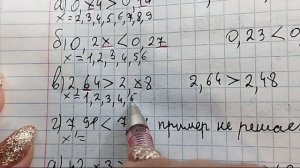 а) 0, x4 > 0,14
x = 2, 3, 4, 5, 6, 7, 8, 9
б) 0, 2x < 0, 27
x = 1, 2, 3, 4, 5, 6
0, 23 < 0
в) 2, 64 > 2, x8
2, 64 > 2, 48
x = 1, 2, 3, 4, 5
г) 7
пример не решае
x =